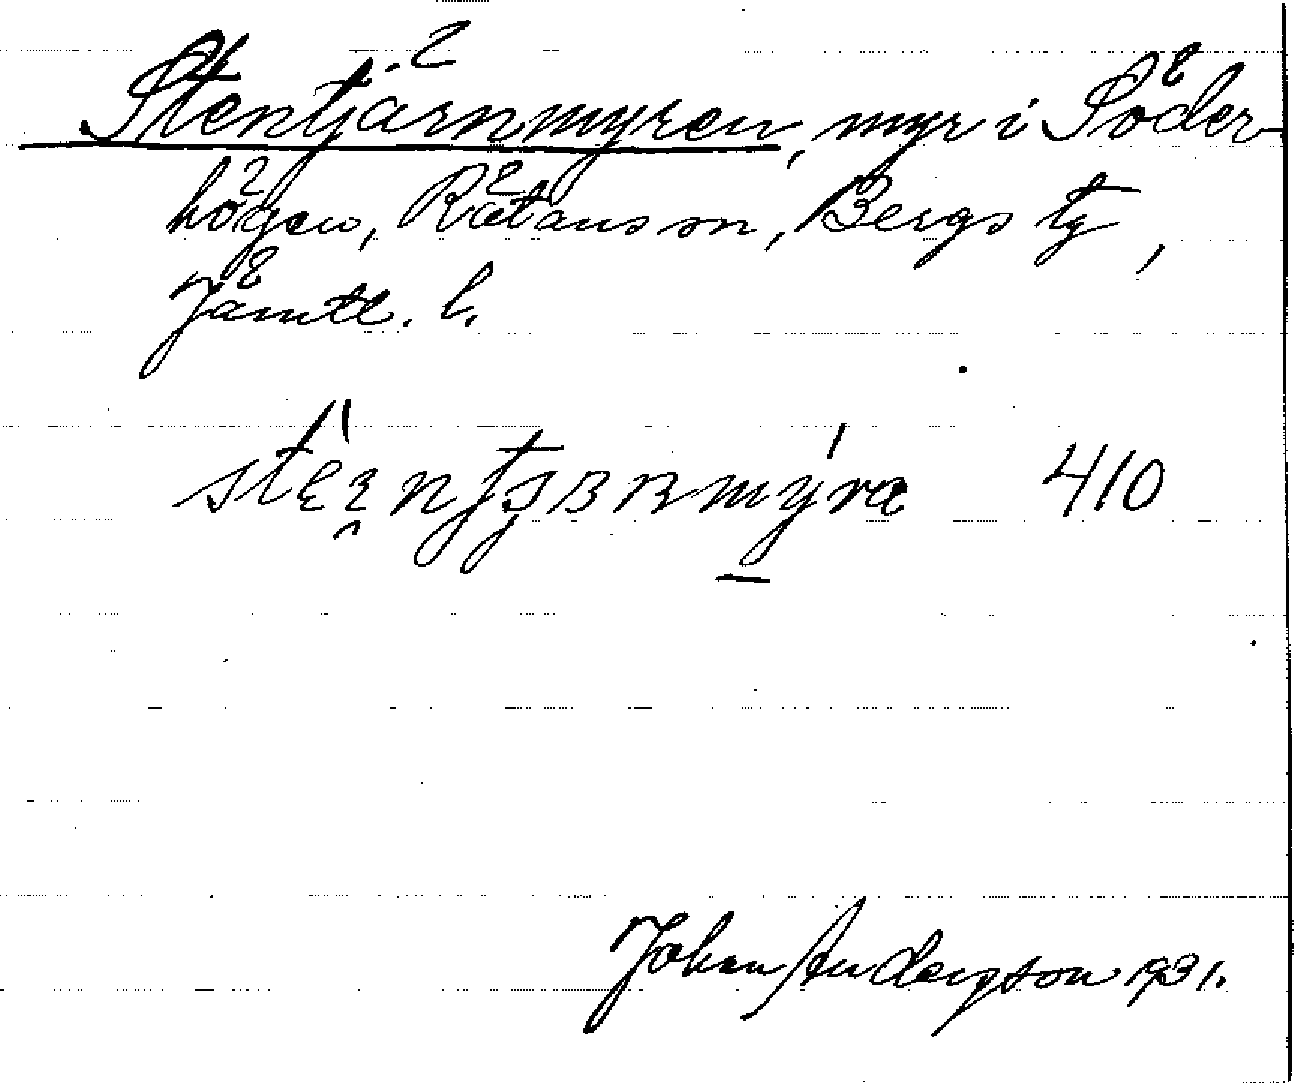 Stentjärnmyren, myr i Söder-
högen, Rätans sn, Bergs tg,
Jämtl. l.
410
Johan Anderson 1931.